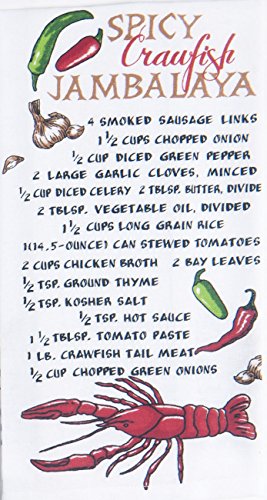 SPICY
Crawfish
JAMBALAYA
4 SMOKED SAUSAGE LINKS
1 1/2 CUPS CHOPPED ONION
1/2 CUP DICED GREEN PEPPER
2 LARGE GARLIC CLOVES, MINCED
1/2 CUP DICED CELERY 2 TBLSP. BUTTER, DIVIDE
2 TBLSP. VEGETABLE OIL, DIVIDED
1 1/2 CUPS LONG GRAIN RICE
1(14.5-OUNCE) CAN STEWED TOMATOES
2 CUPS CHICKEN BROTH 2 BAY LEAVES
1/2 TSP. GROUND THYME
1/2 TSP. KOSHER SALT
1/2 TSP. HOT SAUCE
1 1/2 TBLSP. TOMATO PASTE
1 LB. CRAWFISH TAIL MEAT
1/2 CUP CHOPPED GREEN ONIONS